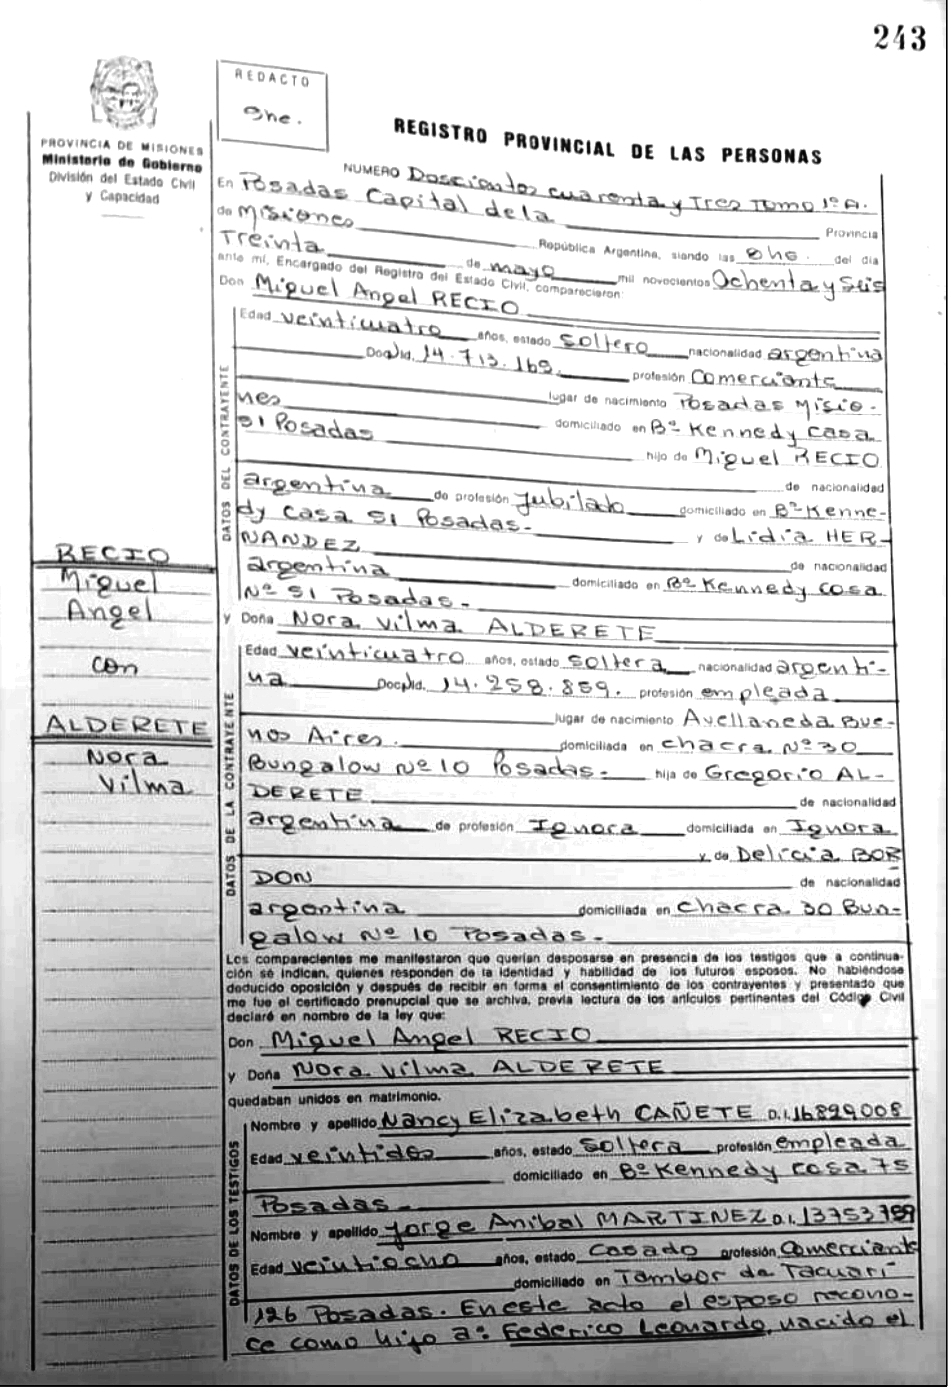 243
REDACTO
She.
PROVINCIA DE MISIONES
Ministerio de Gobierno
División del Estado Civil
y Capacidad
REGISTRO PROVINCIAL DE LAS PERSONAS
NUMERO Doscientos cuarenta y Tres Tomo 1º A.
En Posadas Capital de la Provincia
de Misiones República Argentina, siendo las 8hs. del día
Treinta de mayo mil novecientos Ochenta y Seis
ante mí, Encargado del Registro del Estado Civil, comparecieron:
Don Miguel Angel RECIO
DATOS DEL CONTRAYENTE
Edad veinticuatro años, estado soltero nacionalidad argentina
14.713.169. profesión Comerciante
lugar de nacimiento Posadas Misio-
nes domiciliado en Bº Kennedy casa
51 Posadas hijo de Miguel RECIO
de nacionalidad
argentina de profesión Jubilado domiciliado en Bº Kenne-
dy casa 51 Posadas- y de Lidia HER-
NANDEZ de nacionalidad
argentina domiciliado en Bº Kennedy casa
Nº 51 Posadas.-
y Doña Nora Vilma ALDERETE
DATOS DE LA CONTRAYENTE
Edad veinticuatro años, estado soltera nacionalidad argenti-
na 14.258.859. profesión empleada
lugar de nacimiento Avellaneda Bue-
nos Aires. domiciliada en chacra Nº 30
Bungalow Nº 10 Posadas.- hija de Gregorio AL-
DERETE de nacionalidad
argentina de profesión Ignora domiciliada en Ignora
y de Delicia BOR
DON de nacionalidad
argentina domiciliada en chacra 30 Bun-
galow Nº 10 Posadas.-
RECIO
Miguel
Angel
con
ALDERETE
Nora
Vilma
Los comparecientes me manifestaron que querían desposarse en presencia de los testigos que a continua-
ción se indican, quienes responden de la identidad y habilidad de los futuros esposos. No habiéndose
deducido oposición y después de recibir en forma el consentimiento de los contrayentes y presentado que
me fue el certificado prenupcial que se archiva, previa lectura de los artículos pertinentes del Código Civil
declaré en nombre de la ley que:
Don Miguel Angel RECIO
y Doña Nora Vilma ALDERETE
quedaban unidos en matrimonio.
DATOS DE LOS TESTIGOS
Nombre y apellido Nancy Elizabeth CAÑETE D.I. 16829008
Edad veintidos años, estado Soltera profesión empleada
domiciliado en Bº Kennedy casa 75
Posadas
Nombre y apellido Jorge Anibal MARTINEZ D.I. 13753789
Edad veintiocho años, estado Casado profesión Comerciante
domiciliado en Tambor de Tacuarí
126 Posadas. En este acto el esposo recono-
ce como hijo a: Federico Leonardo, nacido el